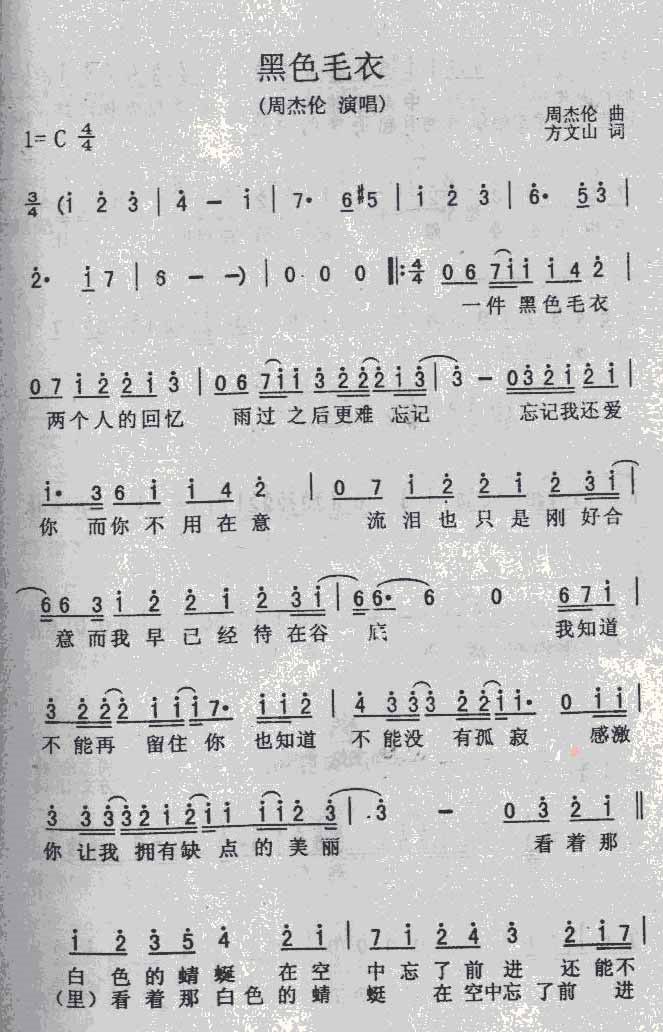 黑色毛衣
(周杰伦 演唱)
周杰伦 曲
1= C 4/4
方文山 词
3/4 (i 2 3 | 4 - i | 7· 6 #5 | i 2 3 | 6· 5 3 |
2· i 7 | 6 - -) | 0 0 0 ‖: 4/4 0 6 7 i i i 4 2 |
一件 黑色毛衣
0 7 i 2 2 i 3 | 0 6 7 i i 3 2 2 2 i 3 | 3 - 0 3 2 i 2 i |
两个人的回忆 雨过 之后更难 忘记 忘记我还爱
i· 3 6 i i 4 2 | 0 7 i 2 2 i 2 3 i |
你 而你不用在意 流泪也只是刚好合
6 6 3 i 2 2 i 2 3 i | 6 6· 6 0 6 7 i |
意而我早已经待在谷 底 我知道
3 2 2 2 i i i 7· i i 2 | 4 3 3 3 2 2 i i· 0 i i |
不能再 留住你 也知道 不能没 有孤寂 感激
3 3 3 3 2 i 2 i i i i 2 3 | 3 - 0 3 2 i ‖
你让我 拥有缺点的美丽 看着那
i 2 3 5 4 2 i | 7 i 2 4 3 2 i 7 |
白色的蜻蜓 在空 中忘了前进 还能不
(里)看着那白色的蜻 蜓 在空中忘了前 进